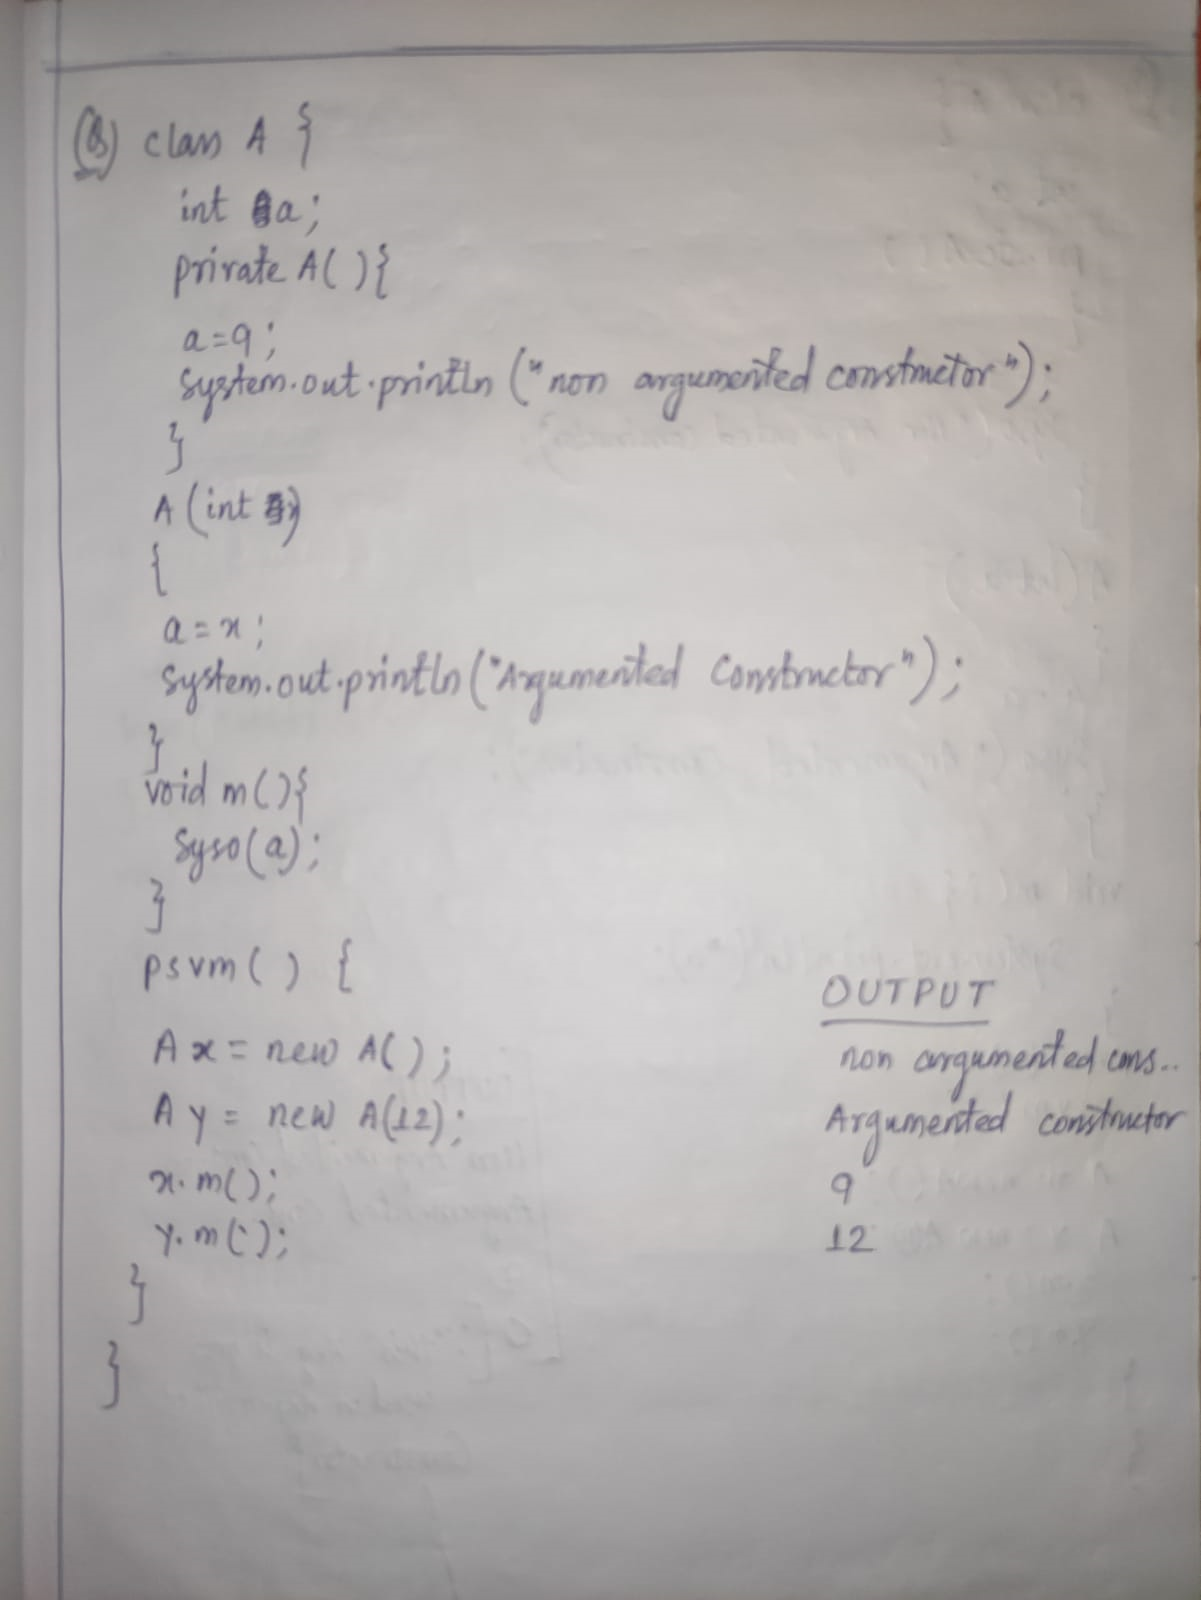 (Q) class A {
int a;
private A( ){
a=9;
System.out.println ("non argumented constructor");
}
A (int x)
{
a=x;
System.out.println("Argumented Constructor");
}
void m(){
Syso(a);
}
psvm( ) {
A x = new A( );
A y = new A(12);
x.m();
y.m();
}
}
OUTPUT
non argumented cons..
Argumented constructor
9
12